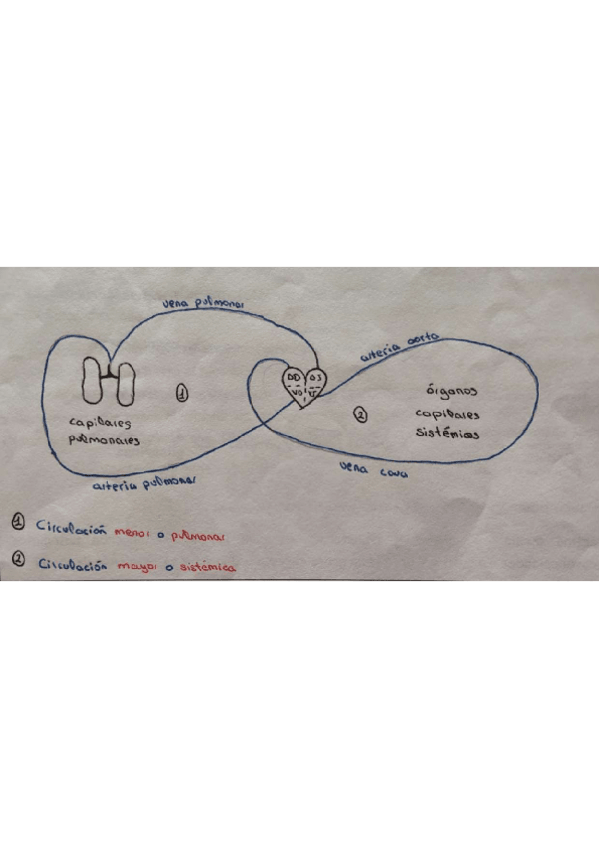 vena pulmonar
arteria aorta
①
②
órganos
capilares
sistémicos
capilares
pulmonares
vena cava
arteria pulmonar
① Circulación menor o pulmonar
② Circulación mayor o sistémica